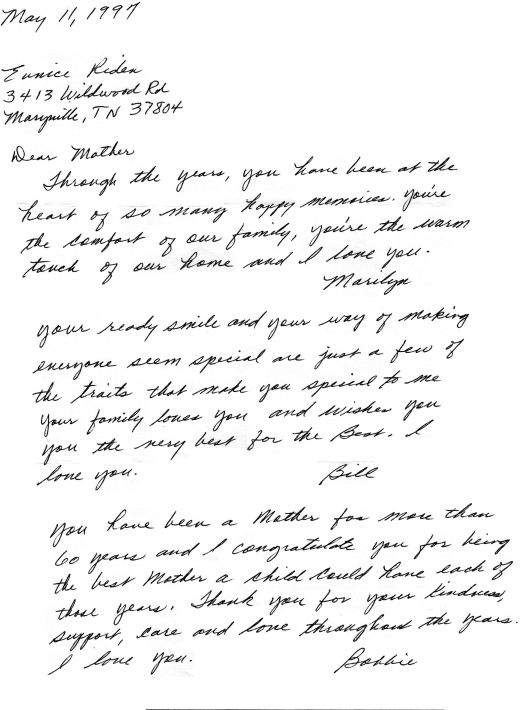 May 11, 1997
Eunice Riden
3413 Wildwood Rd
Maryville, TN 37804
Dear Mother
Through the years, you have been at the
heart of so many happy memories. You're
the comfort of our family, you're the warm
touch of our home and I love you.
Marilyn
Your ready smile and your way of making
everyone seem special are just a few of
the traits that make you special to me
Your family loves you and wishes you
you the very best for the Best. I
love you.
Bill
You have been a Mother for more than
60 years and I congratulate you for being
the best Mother a child could have each of
those years. Thank you for your kindness,
support, care and love throughout the years.
I love you.
Bobbie